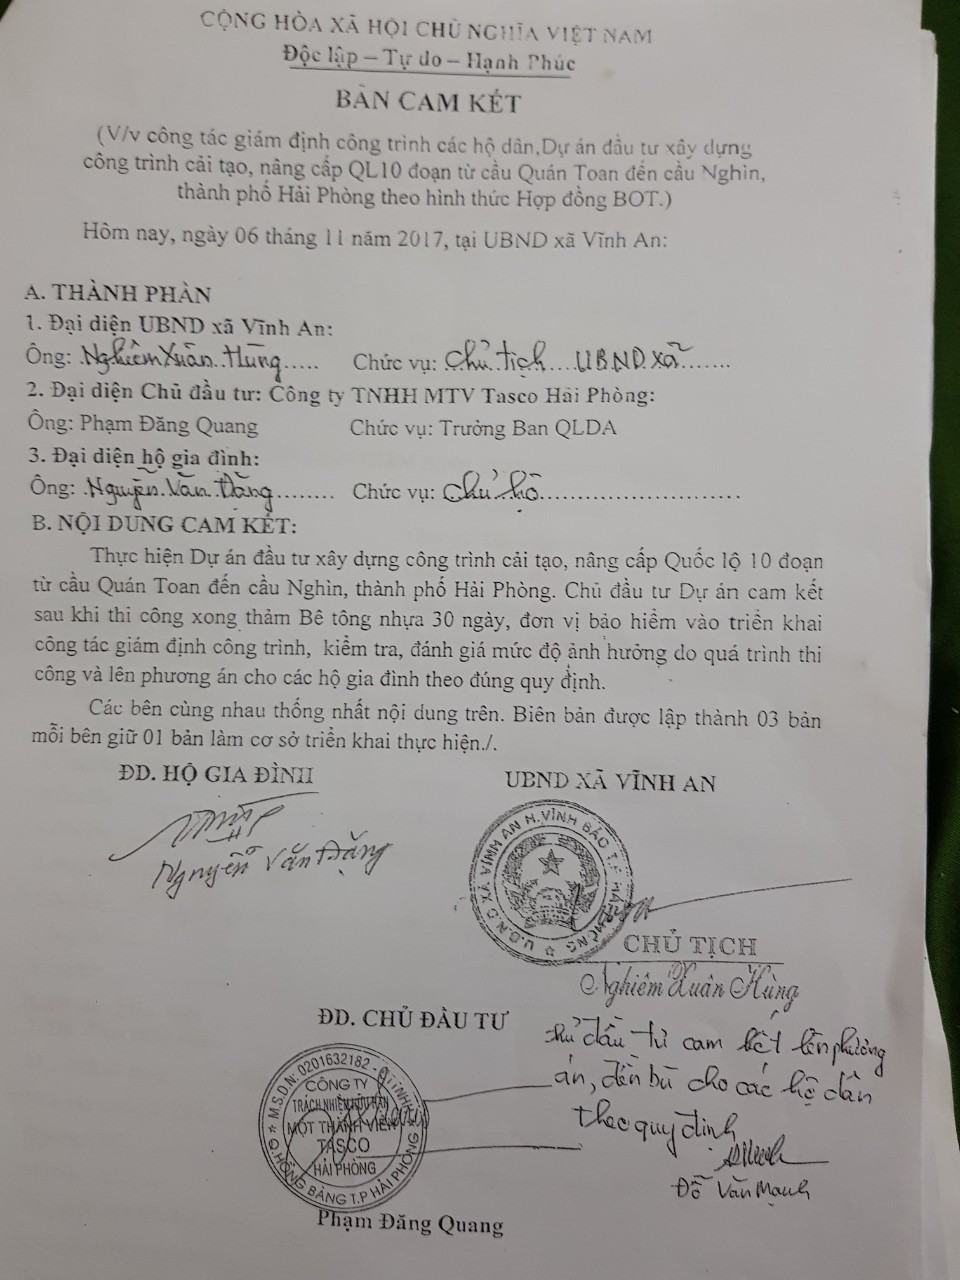 CỘNG HÒA XÃ HỘI CHỦ NGHĨA VIỆT NAM
Độc lập – Tự do – Hạnh Phúc
BẢN CAM KẾT
(V/v công tác giám định công trình các hộ dân,Dự án đầu tư xây dựng
công trình cải tạo, nâng cấp QL10 đoạn từ cầu Quán Toan đến cầu Nghìn,
thành phố Hải Phòng theo hình thức Hợp đồng BOT.)
Hôm nay, ngày 06 tháng 11 năm 2017, tại UBND xã Vĩnh An:
A. THÀNH PHẦN
1. Đại diện UBND xã Vĩnh An:
Ông: Nghiêm Xuân Hùng..... Chức vụ: Chủ tịch UBND xã.......
2. Đại diện Chủ đầu tư: Công ty TNHH MTV Tasco Hải Phòng:
Ông: Phạm Đăng Quang Chức vụ: Trưởng Ban QLDA
3. Đại diện hộ gia đình:
Ông: Nguyễn Văn Đằng........ Chức vụ: Chủ hộ..........................
B. NỘI DUNG CAM KẾT:
Thực hiện Dự án đầu tư xây dựng công trình cải tạo, nâng cấp Quốc lộ 10 đoạn
từ cầu Quán Toan đến cầu Nghìn, thành phố Hải Phòng. Chủ đầu tư Dự án cam kết
sau khi thi công xong thảm Bê tông nhựa 30 ngày, đơn vị bảo hiểm vào triển khai
công tác giám định công trình, kiểm tra, đánh giá mức độ ảnh hưởng do quá trình thi
công và lên phương án cho các hộ gia đình theo đúng quy định.
Các bên cùng nhau thống nhất nội dung trên. Biên bản được lập thành 03 bản
mỗi bên giữ 01 bản làm cơ sở triển khai thực hiện./.
ĐD. HỘ GIA ĐÌNH
UBND XÃ VĨNH AN
Nguyễn Văn Đặng
U.B.N.D XÃ VĨNH AN H.VĨNH BẢO T.P HẢI PHÒNG
CHỦ TỊCH
Nghiêm Xuân Hùng
ĐD. CHỦ ĐẦU TƯ
chủ đầu tư cam kết lên phương
án, đền bù cho các hộ dân
theo quy định
Đỗ Văn Mạnh
M.S.D.N: 0201632182
CÔNG TY
TRÁCH NHIỆM HỮU HẠN
MỘT THÀNH VIÊN
TASCO
HẢI PHÒNG
HỒNG BÀNG T.P HẢI PHÒNG
Phạm Đăng Quang